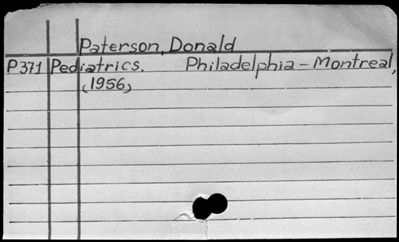 Paterson, Donald
P371 Pediatrics. Philadelphia - Montreal,
(1956)